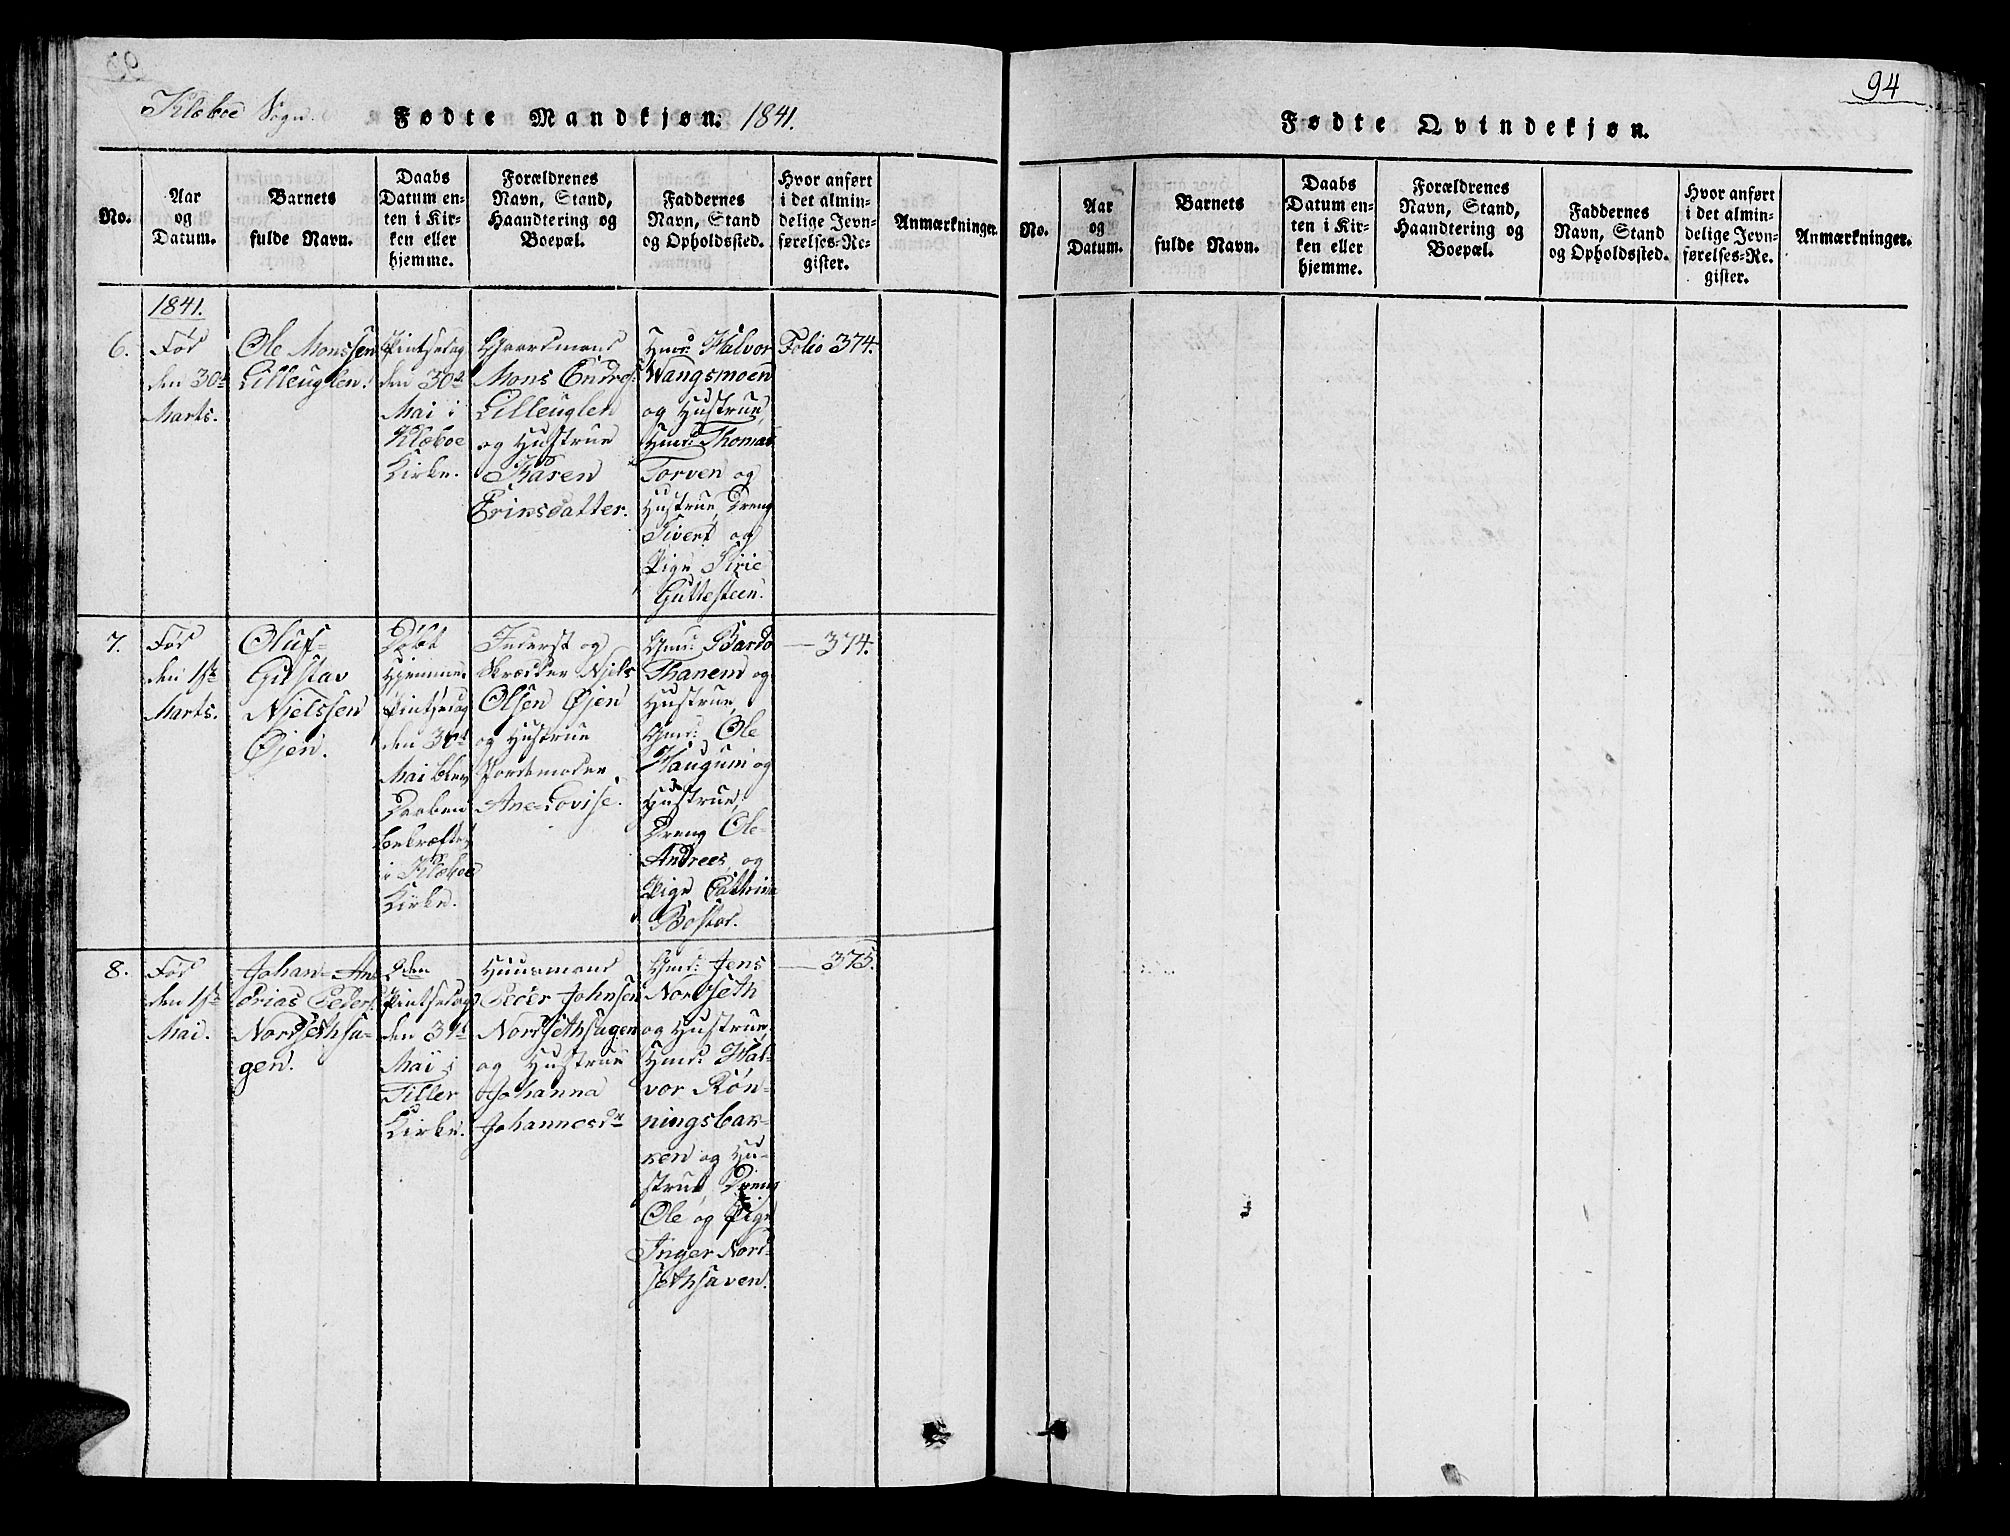 94
Klæboe Sogn. Fødte Mandkjøn. 1841.
No.
Aar
og
Datum.
Barnets
fulde Navn.
Daabs
Datum en-
ten i Kir-
ken eller
hjemme.
Forældrenes
Navn, Stand,
Haandtering og
Boepæl.
Faddernes
Navn, Stand
og Opholdssted.
Hvor anført
i det almin-
delige Jevn-
førelses-Re-
gister.
Anmærkninger.
1841.
6.
Fød
den 30te
Marts.
Ole Monssen
Lilleuglen.
Pintsedag
den 30te
Mai i
Klæboe
Kirke.
Gaardmand
Mons Endres:
Lilleuglen
og Hustrue
Karen
Erinsdatter.
Hmd: Halvor
Wangsmoen
og Hustrue,
Hmd: Thomas
Torven og
Hustrue, Dreng
Sivert og
Pige Sirie
Guttesteen.
Folio 374.
7.
Fød
den 1ste
Marts.
Oluf-
Gustav
Nielssen
Øjen.
Døbt
Hjemme.
Pintsedag
den 30te
Mai blev
Daaben
bekræftet
i Klæboe
Kirke.
Inderst og
Skrædder Njels
Olsen Øjen
og Hustrue
Jordemoder
Ane-Lovise.
Gmd: Bardo
Thanem og
Hustrue,
Gmd: Ole
Haugum og
Hustrue,
Dreng Ole-
Andreas og
Pige Cathrina
Bostad.
— 374.
8.
Fød
den 1ste
Mai.
Johan-An-
drias Peders:
Nordsethsa-
gen.
2den
Pintsedag
den 31te
Mai i
Tiller
Kirke.
Huusmand
Peder Johnsen
Nordsethsagen
og Hustrue
Johanna
Johannesdr
Gmd: Jens
Nordseth
og Hustrue,
Hmd: Hal-
vor Røn-
ningsbak-
ken og Hu-
strue, Dreng
Ole og Pige
Inger Nord-
sethsaven.
— 375.
Fødte Qvindekjøn.
No.
Aar
og
Datum.
Barnets
fulde Navn.
Daabs
Datum en-
ten i Kir-
ken eller
hjemme.
Forældrenes
Navn, Stand,
Haandtering og
Boepæl.
Faddernes
Navn, Stand
og Opholdssted.
Hvor anført
i det almin-
delige Jevn-
førelses-Re-
gister.
Anmærkninger.